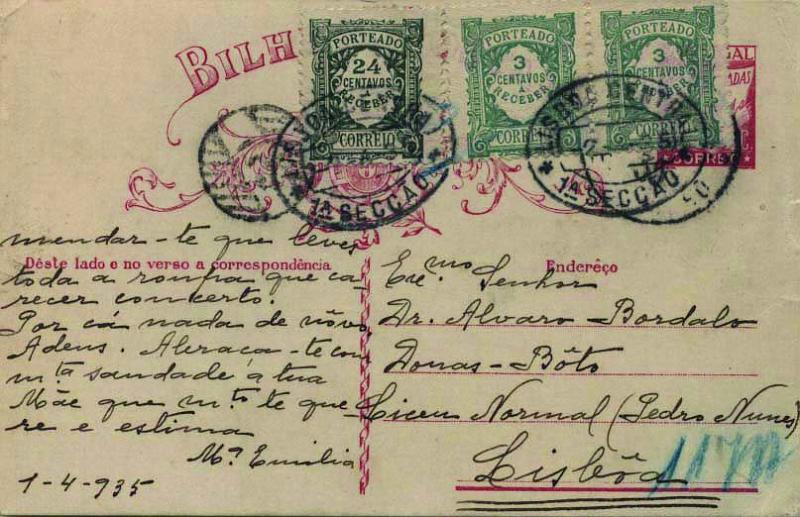 BILH
PORTEADO
24
CENTAVOS
A
RECEBER
CORREIO
PORTEADO
3
CENTAVOS
A
RECEBER
CORREIO
PORTEADO
3
CENTAVOS
A
RECEBER
CORREIO
GAL
CORREIO
1ª SECCÃO
LISBOA CENTRAL
1ª SECCÃO
mendar-te que leves
Dêste lado e no verso a correspondência
toda a roupa que ca
recer concerto.
Por cá nada de nôvo,
Adeus. Abraça-te com
m.ta saudade a tua
Mãe que m.to te que
re e estima
Mª Emilia
1-4-935
Exc.mo Senhor
Enderêço
Dr. Alvaro-Bordalo
Donas-Bôto
Liceu Normal (Pedro Nunes)
Lisbôa